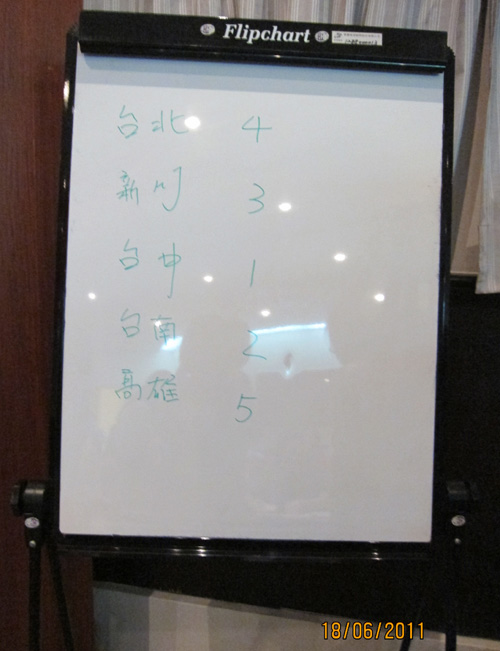 Flipchart
台北 4
新竹 3
台中 1
台南 2
高雄 5
18/06/2011